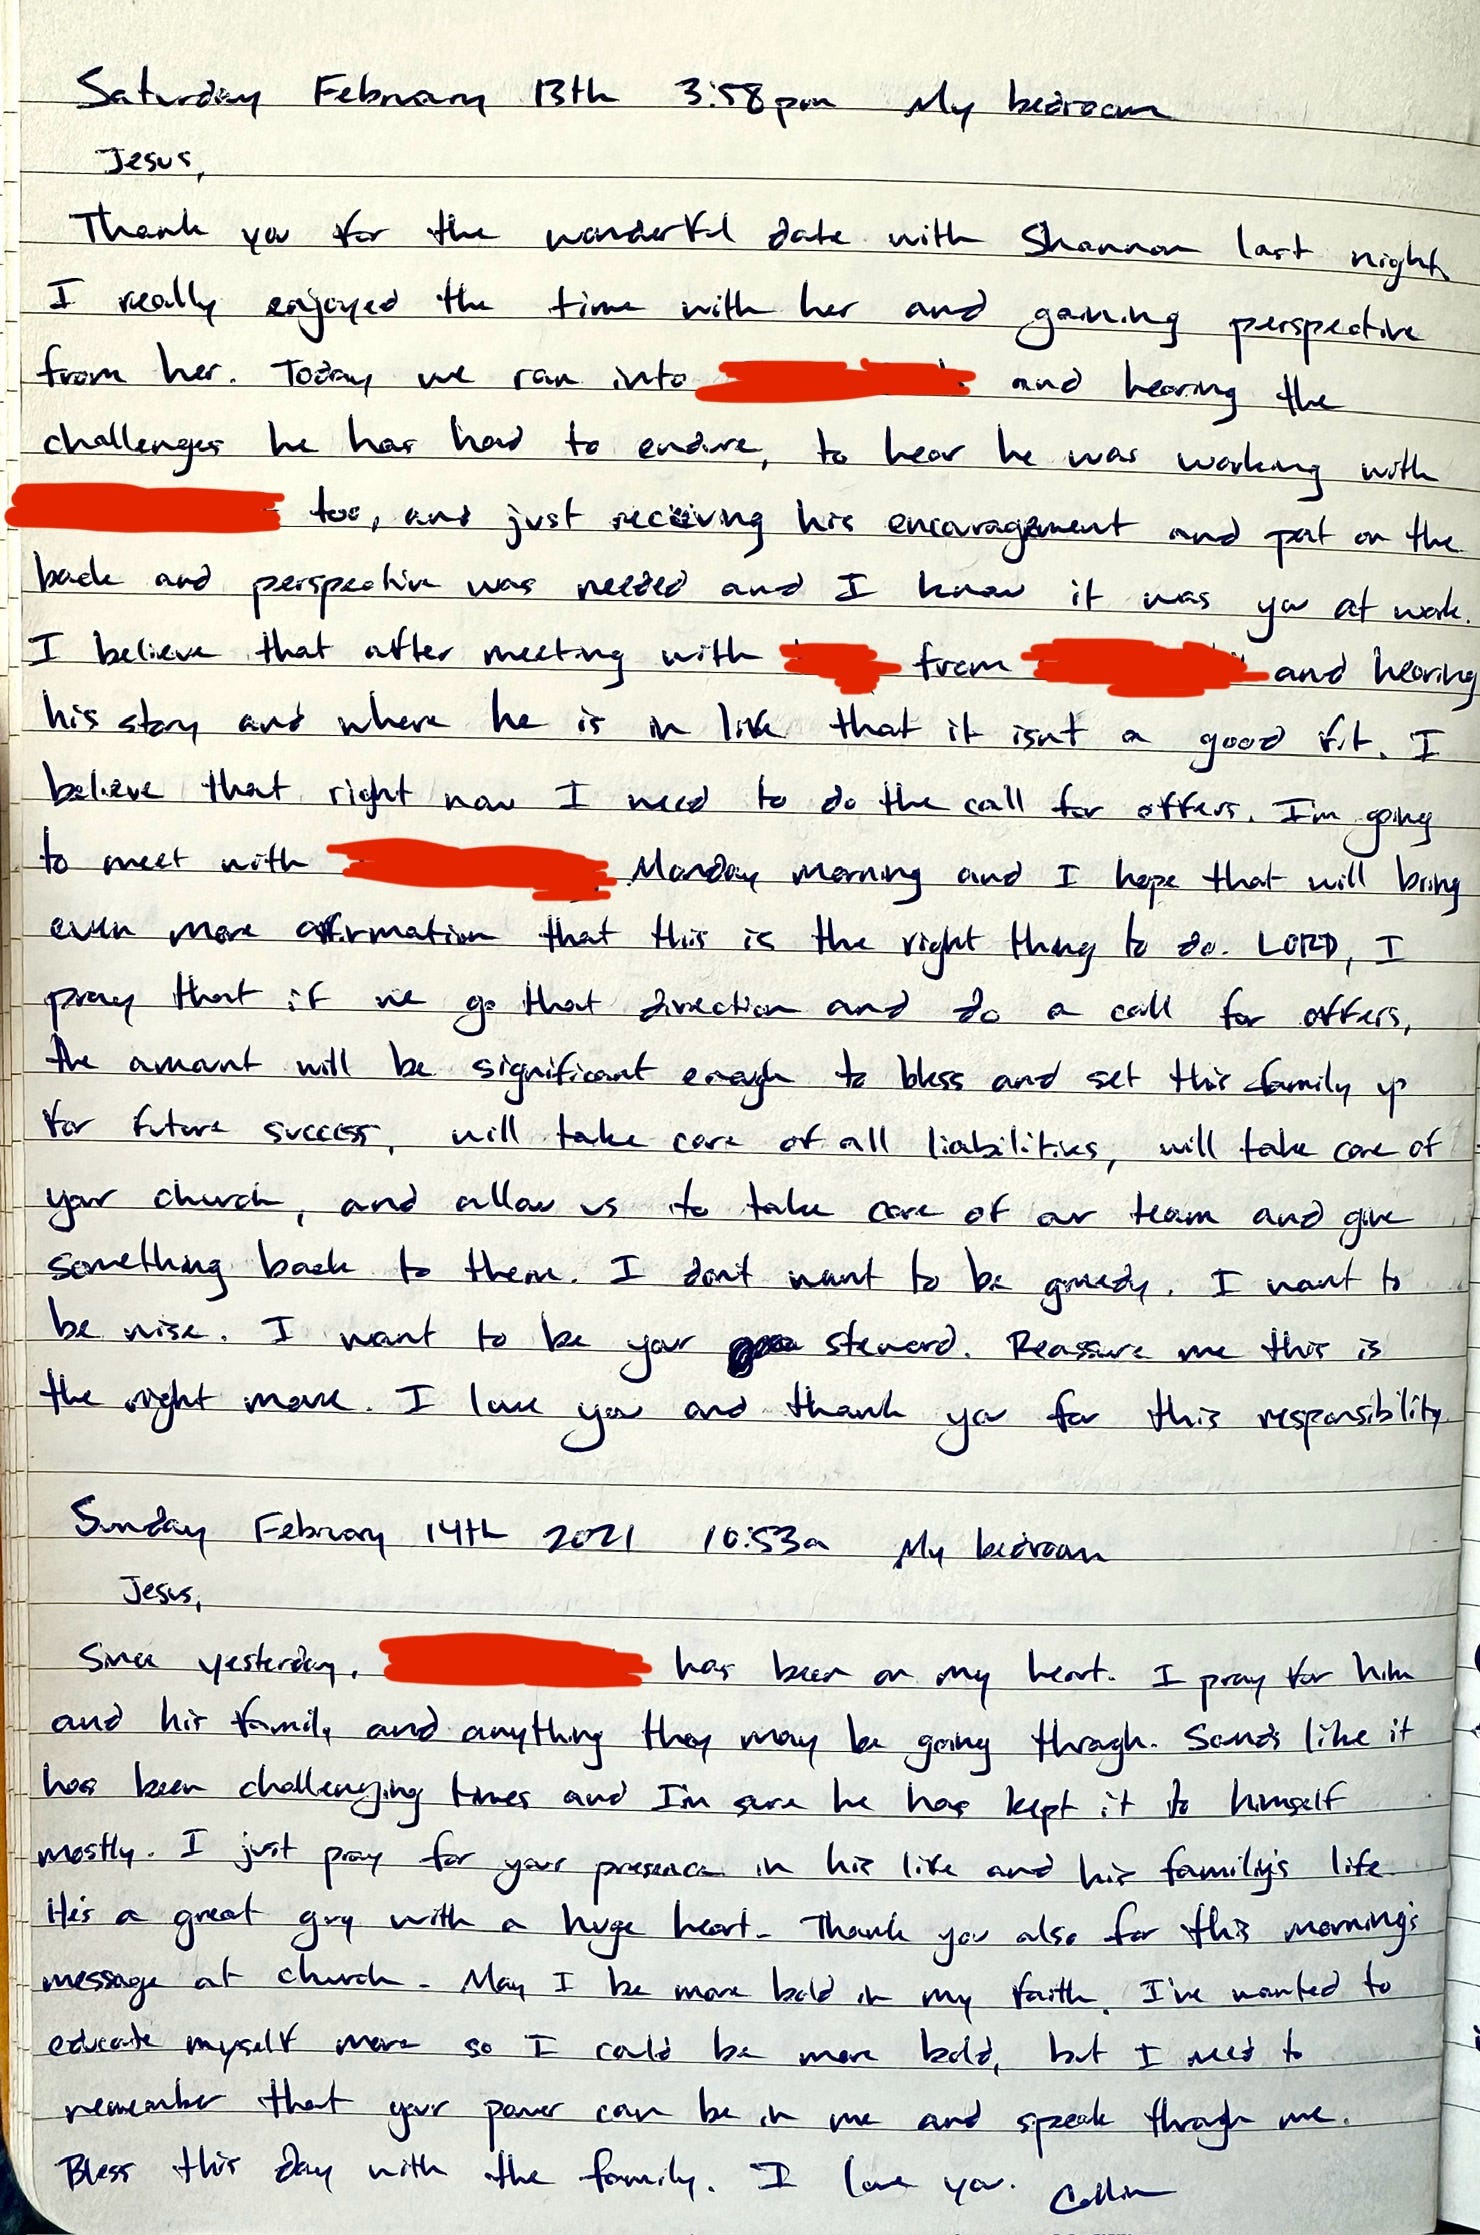 Saturday February 13th 3:58pm My bedroom
Jesus,
Thank you for the wonderful date with Shannon last night.
I really enjoyed the time with her and gaining perspective
from her. Today we ran into and hearing the
challenges he has had to endure, to hear he was working with
too, and just receiving his encouragement and pat on the
back and perspective was needed and I know it was you at work.
I believe that after meeting with from and hearing
his story and where he is in life that it isnt a good fit. I
believe that right now I need to do the call for offers. I'm going
to meet with Monday morning and I hope that will bring
even more affirmation that this is the right thing to do. LORD, I
pray that if we go that direction and do a call for offers,
the amount will be significant enough to bless and set this family up
for future success, will take care of all liabilities, will take care of
your church, and allow us to take care of our team and give
something back to them. I dont want to be greedy. I want to
be wise. I want to be your steward. Reassure me this is
the right move. I love you and thank you for this responsiblity.
Sunday February 14th 2021 10:53a My bedroom
Jesus,
Since yesterday, has been on my heart. I pray for him
and his family and anything they may be going through. Sounds like it
has been challenging times and I'm sure he has kept it to himself
mostly. I just pray for your presence in his life and his family's life.
He's a great guy with a huge heart. Thank you also for this morning's
message at church. May I be more bold in my faith. I've wanted to
educate myself more so I could be more bold, but I need to
remember that your power can be in me and speak through me.
Bless this day with the family. I love you. Collin